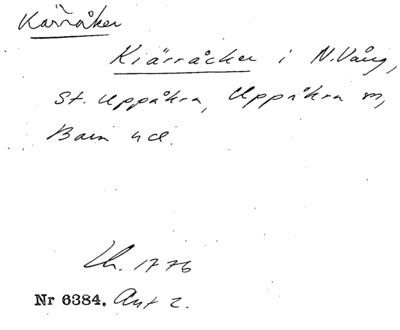 Kärråker
Kiärråcker i N. Vång,
St. Uppåkra, Uppåkra sn,
Bara hd.
Lh. 1776
Nr 6384. Akt 2.